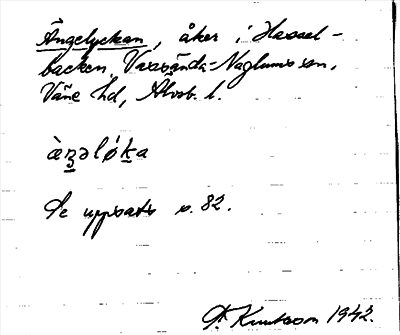 Ängelyckan, åker i Hassel-
backen, Vassända-Naglums sn,
Väne hd, Älvsb. l.
Se uppsats s. 82.
Knutsson 1942.